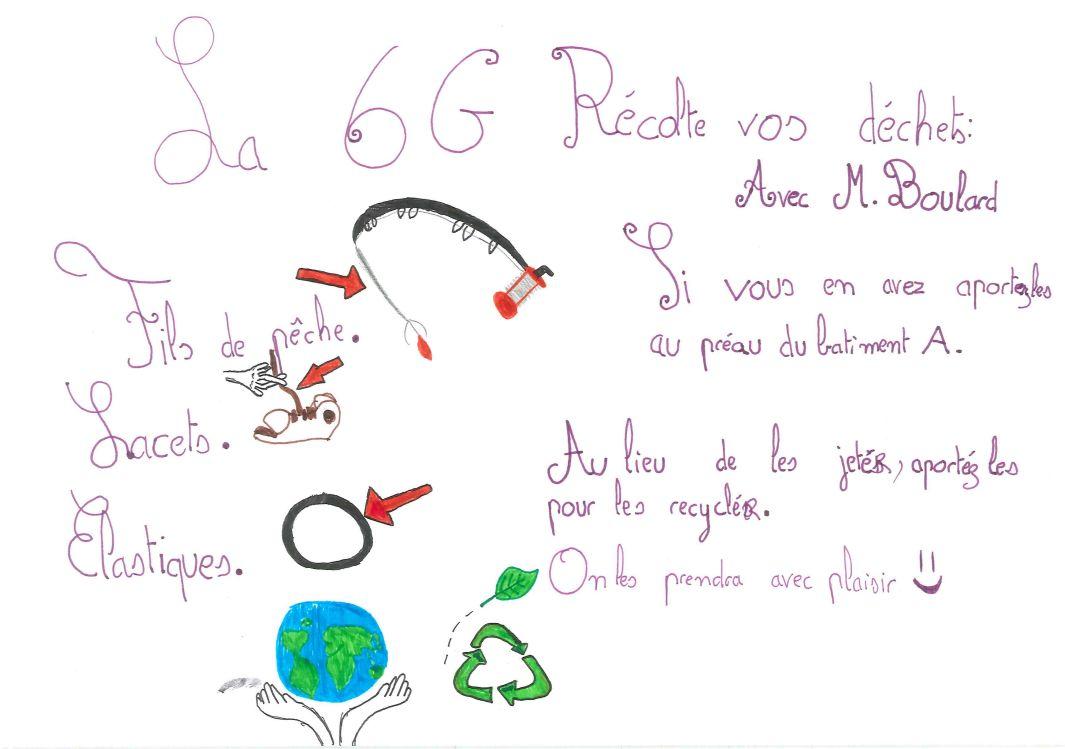 La 6G Récolte vos déchets:
Avec M. Boulard
Fils de pêche.
Lacets.
Elastiques.
Si vous en avez aportezles
au préau du batiment A.
Au lieu de les jetéR, aportéz les
pour les recycléR.
On les prendra avec plaisir